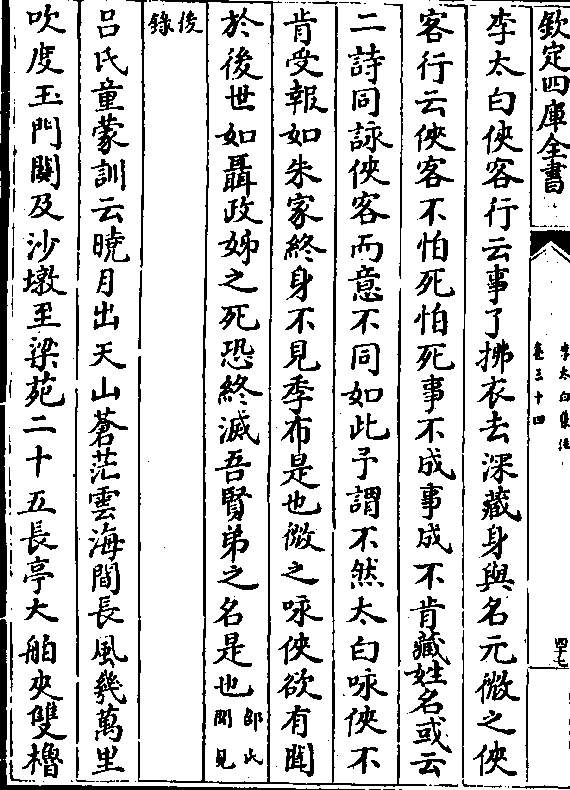 欽定四庫全書
李太白集注
卷三十四
四七
李太白俠客行云事了拂衣去深藏身與名元微之俠
客行云俠客不怕死怕死事不成事成不肯藏姓名或云
二詩同詠俠客而意不同如此予謂不然太白咏俠不
肯受報如朱家終身不見季布是也微之咏俠欲有聞
於後世如聶政姊之死恐終滅吾賢弟之名是也邵氏聞見
後錄
呂氏童蒙訓云曉月出天山蒼茫雲海間長風幾萬里
吹度玉門關及沙墩至梁苑二十五長亭大舶夾雙櫓